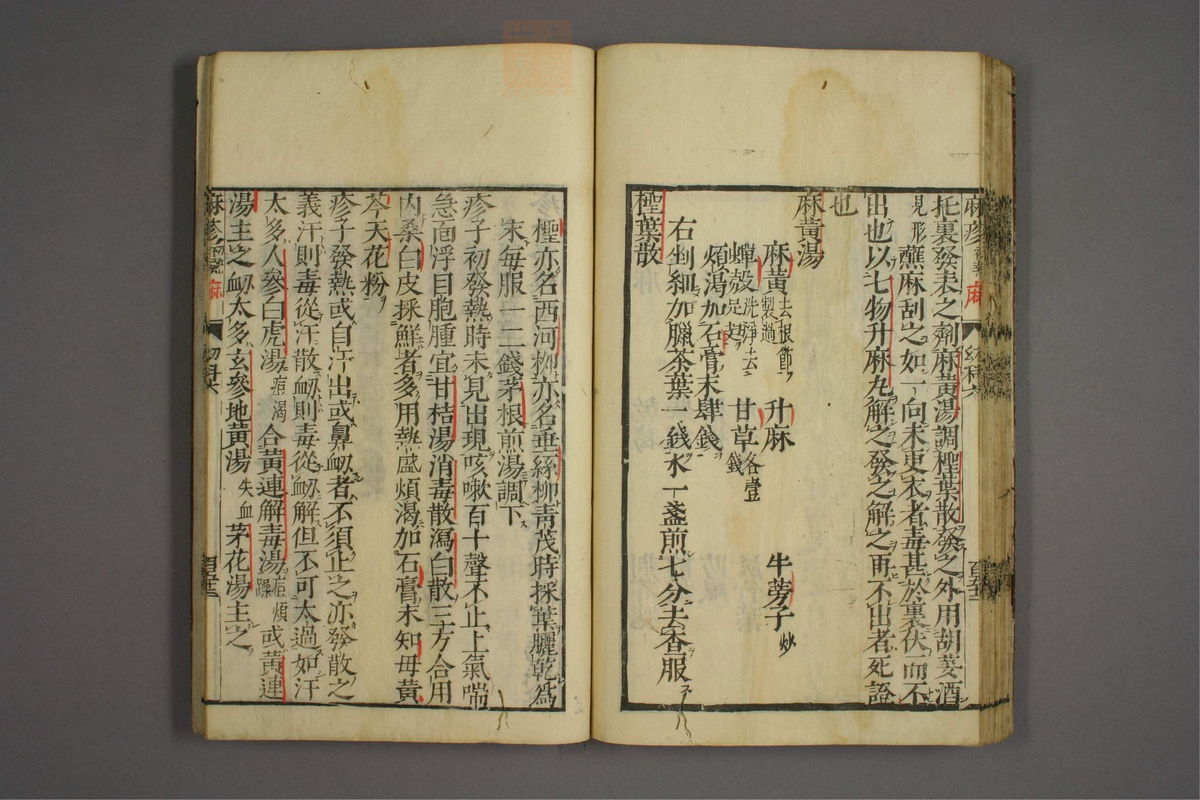 托裏發表之劑麻黃湯調檉葉散發之外用胡荽酒
見形蘸麻刮之如一向未更衣者毒甚於裏伏而不
出也以七物升麻丸解之發之解之再不出者死證
也
麻黃湯
麻黃去根節製過 升麻 牛蒡子炒
蟬殼洗淨去足翅 甘草各壹錢
煩渴加石膏末肆錢
右剉細加臘茶葉一錢水一盞煎七分去查服
檉葉散
檉亦名西河柳亦名垂絲柳青茂時採葉曬乾為
末每服一二錢茅根煎湯調下
疹子初發熱時未見出現咳嗽百十聲不止上氣喘
急面浮目胞腫宜甘桔湯消毒散瀉白散三方合用
內桑白皮採鮮者多用熱盛煩渴加石膏末知母黃
芩天花粉
疹子發熱或自汗出或鼻衂者不須止之亦發散之
義汗則毒從汗散衂則毒從衂解但不可太過如汗
太多人參白虎湯痘渴合黃連解毒湯痘煩躁或黃連
湯主之衂太多玄參地黃湯失血茅花湯主之
麻疹 麻